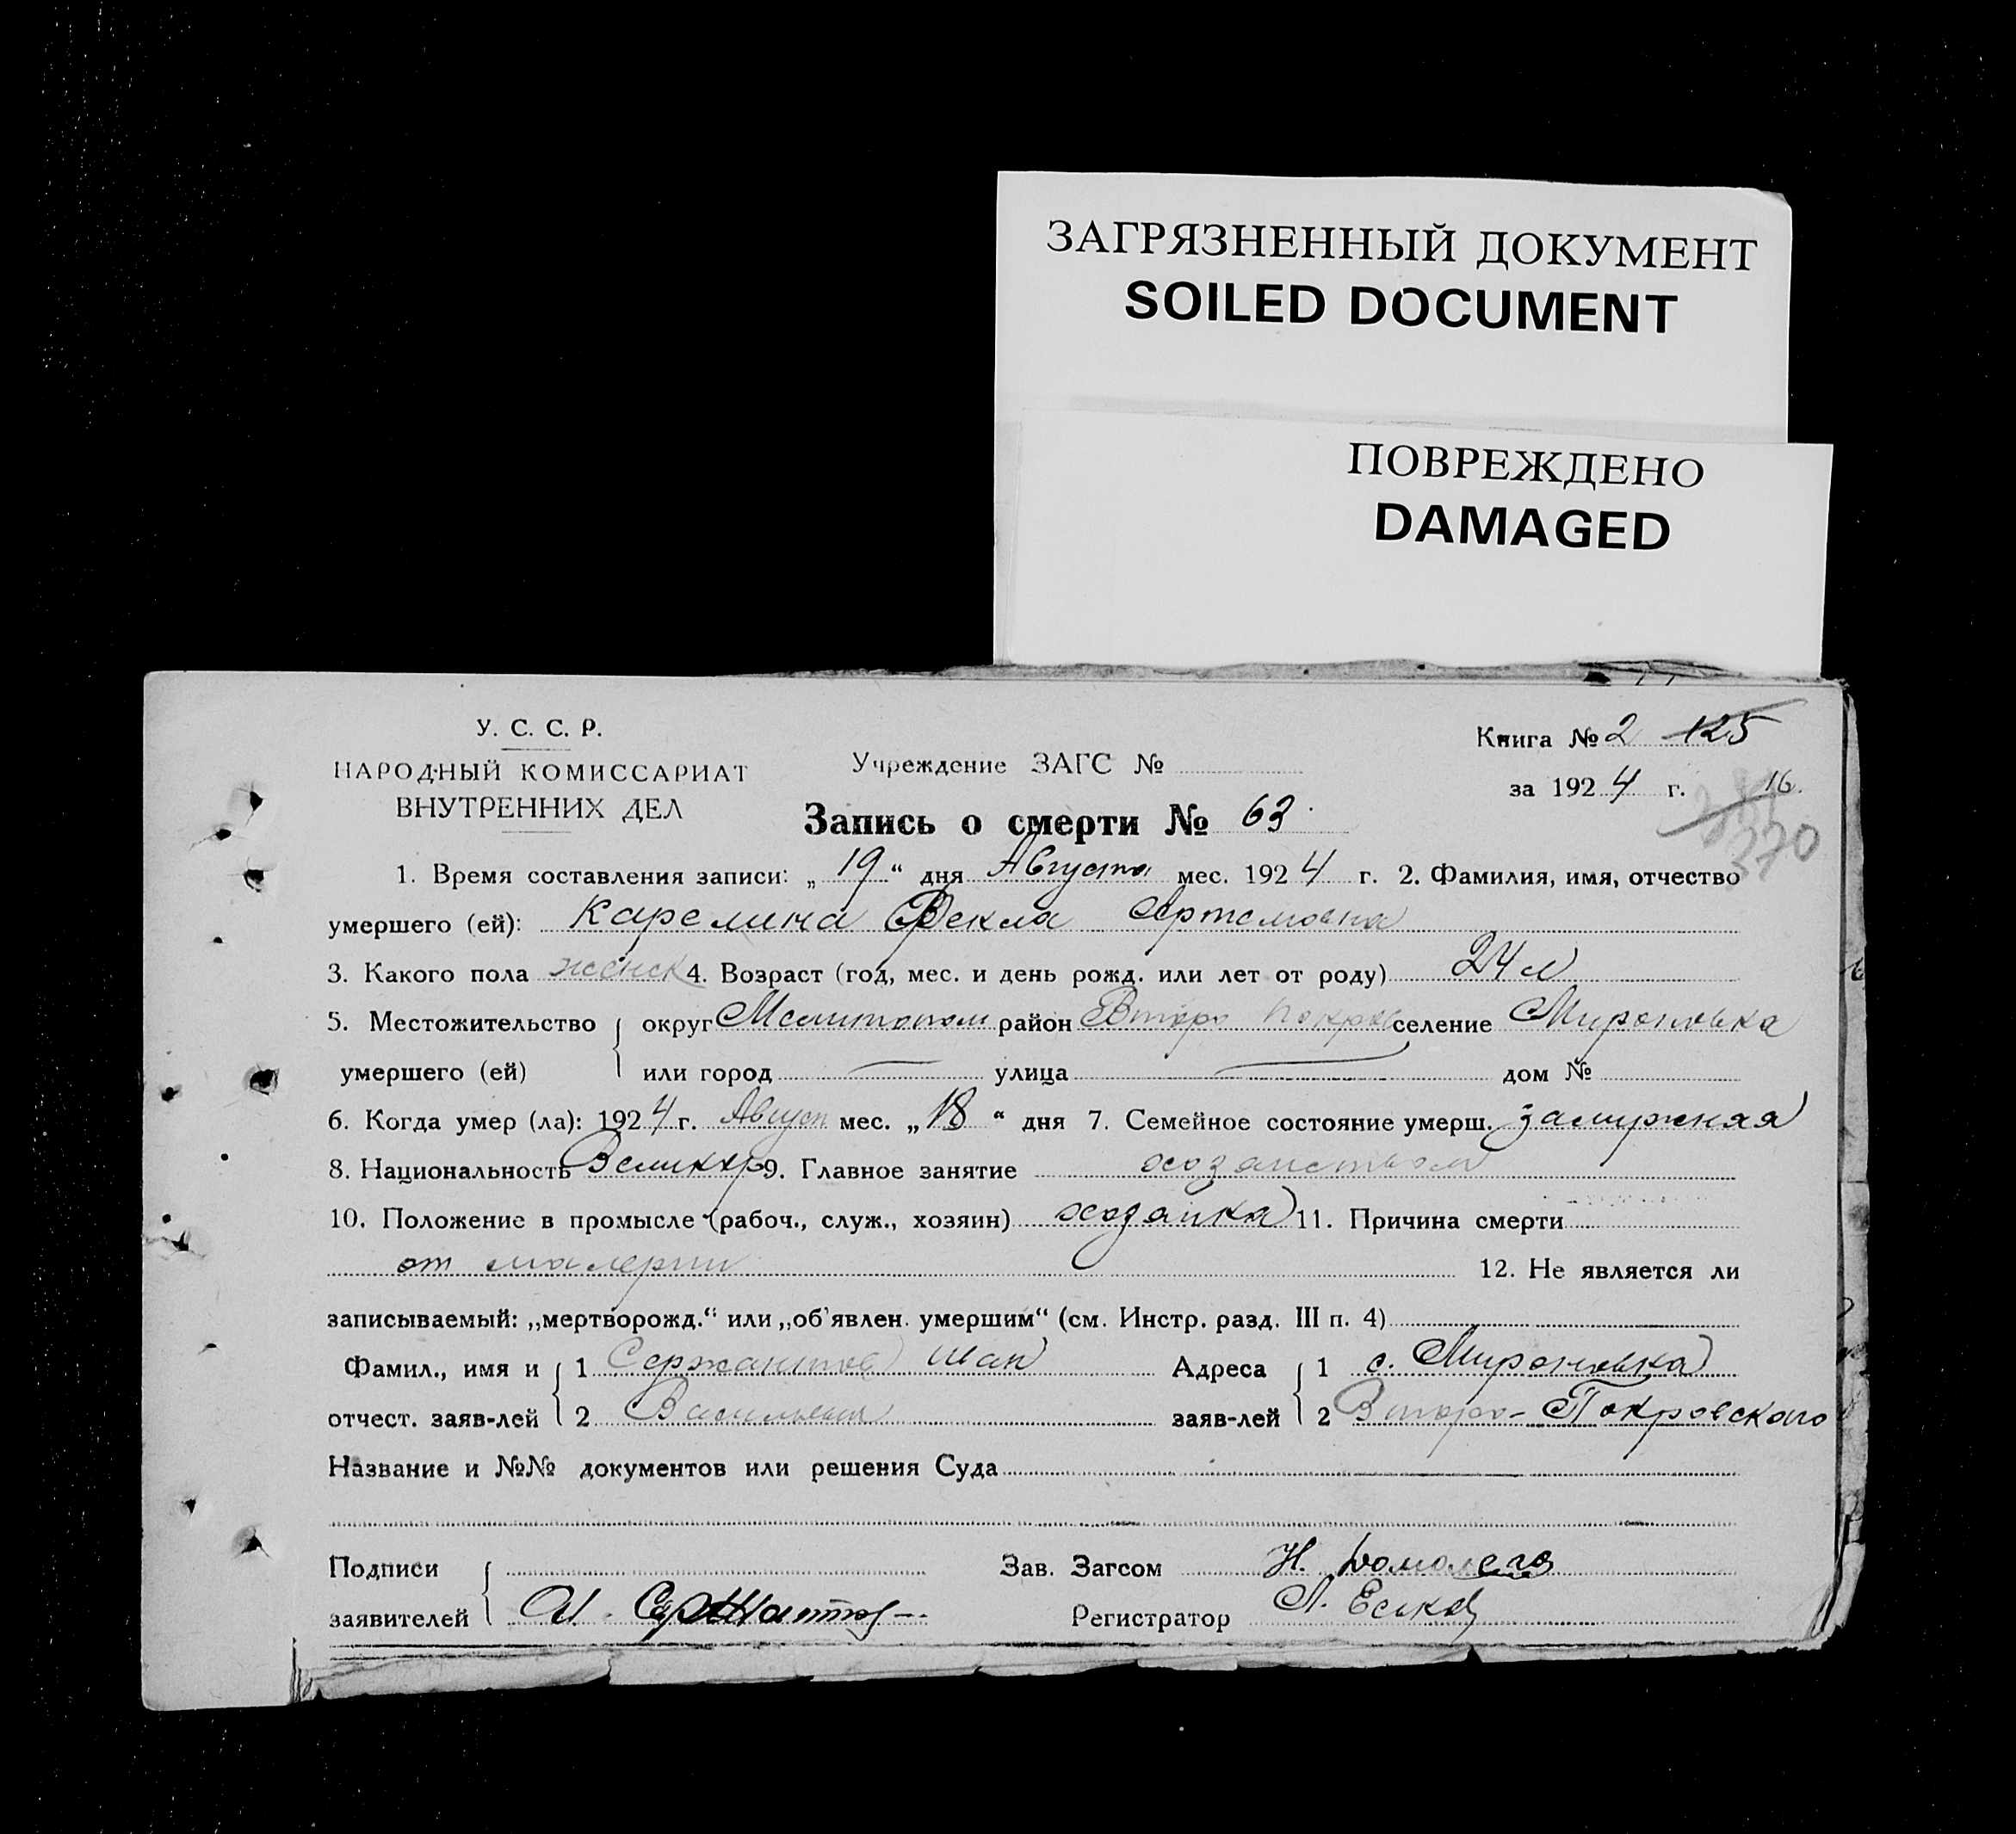 ЗАГРЯЗНЕННЫЙ ДОКУМЕНТ
SOILED DOCUMENT
ПОВРЕЖДЕНО
DAMAGED
У. С. С. Р.
НАРОДНЫЙ КОМИССАРИАТ
ВНУТРЕННИХ ДЕЛ
Учреждение ЗАГС №
Запись о смерти № 63
Книга № 2 125
за 1924 г. 16.
370
1. Время составления записи: „19“ дня Августа мес. 1924 г. 2. Фамилия, имя, отчество
умершего (ей): Карелина Фекла Артемовна
3. Какого пола женск 4. Возраст (год, мес. и день рожд. или лет от роду) 24 л
5. Местожительство округ Мелитопол район Второ Покров селение Мироновка
умершего (ей) или город — улица — дом №
6. Когда умер (ла): 1924 г. Август мес. „18“ дня 7. Семейное состояние умерш. замужняя
8. Национальность Великор 9. Главное занятие хозяйством
10. Положение в промысле (рабоч., служ., хозяин) хозяйка 11. Причина смерти
от малерии 12. Не является ли
записываемый: „мертворожд.“ или „об'явлен. умершим“ (см. Инстр. разд. III п. 4)
Фамил., имя и 1 Сержантов Иван Адреса 1 с. Мироновка
отчест. заяв-лей 2 Васильевич заяв-лей 2 Второ-Покровского
Название и №№ документов или решения Суда
Подписи Зав. Загсом Н.
заявителей И. Сержантов Регистратор Л. Еськов